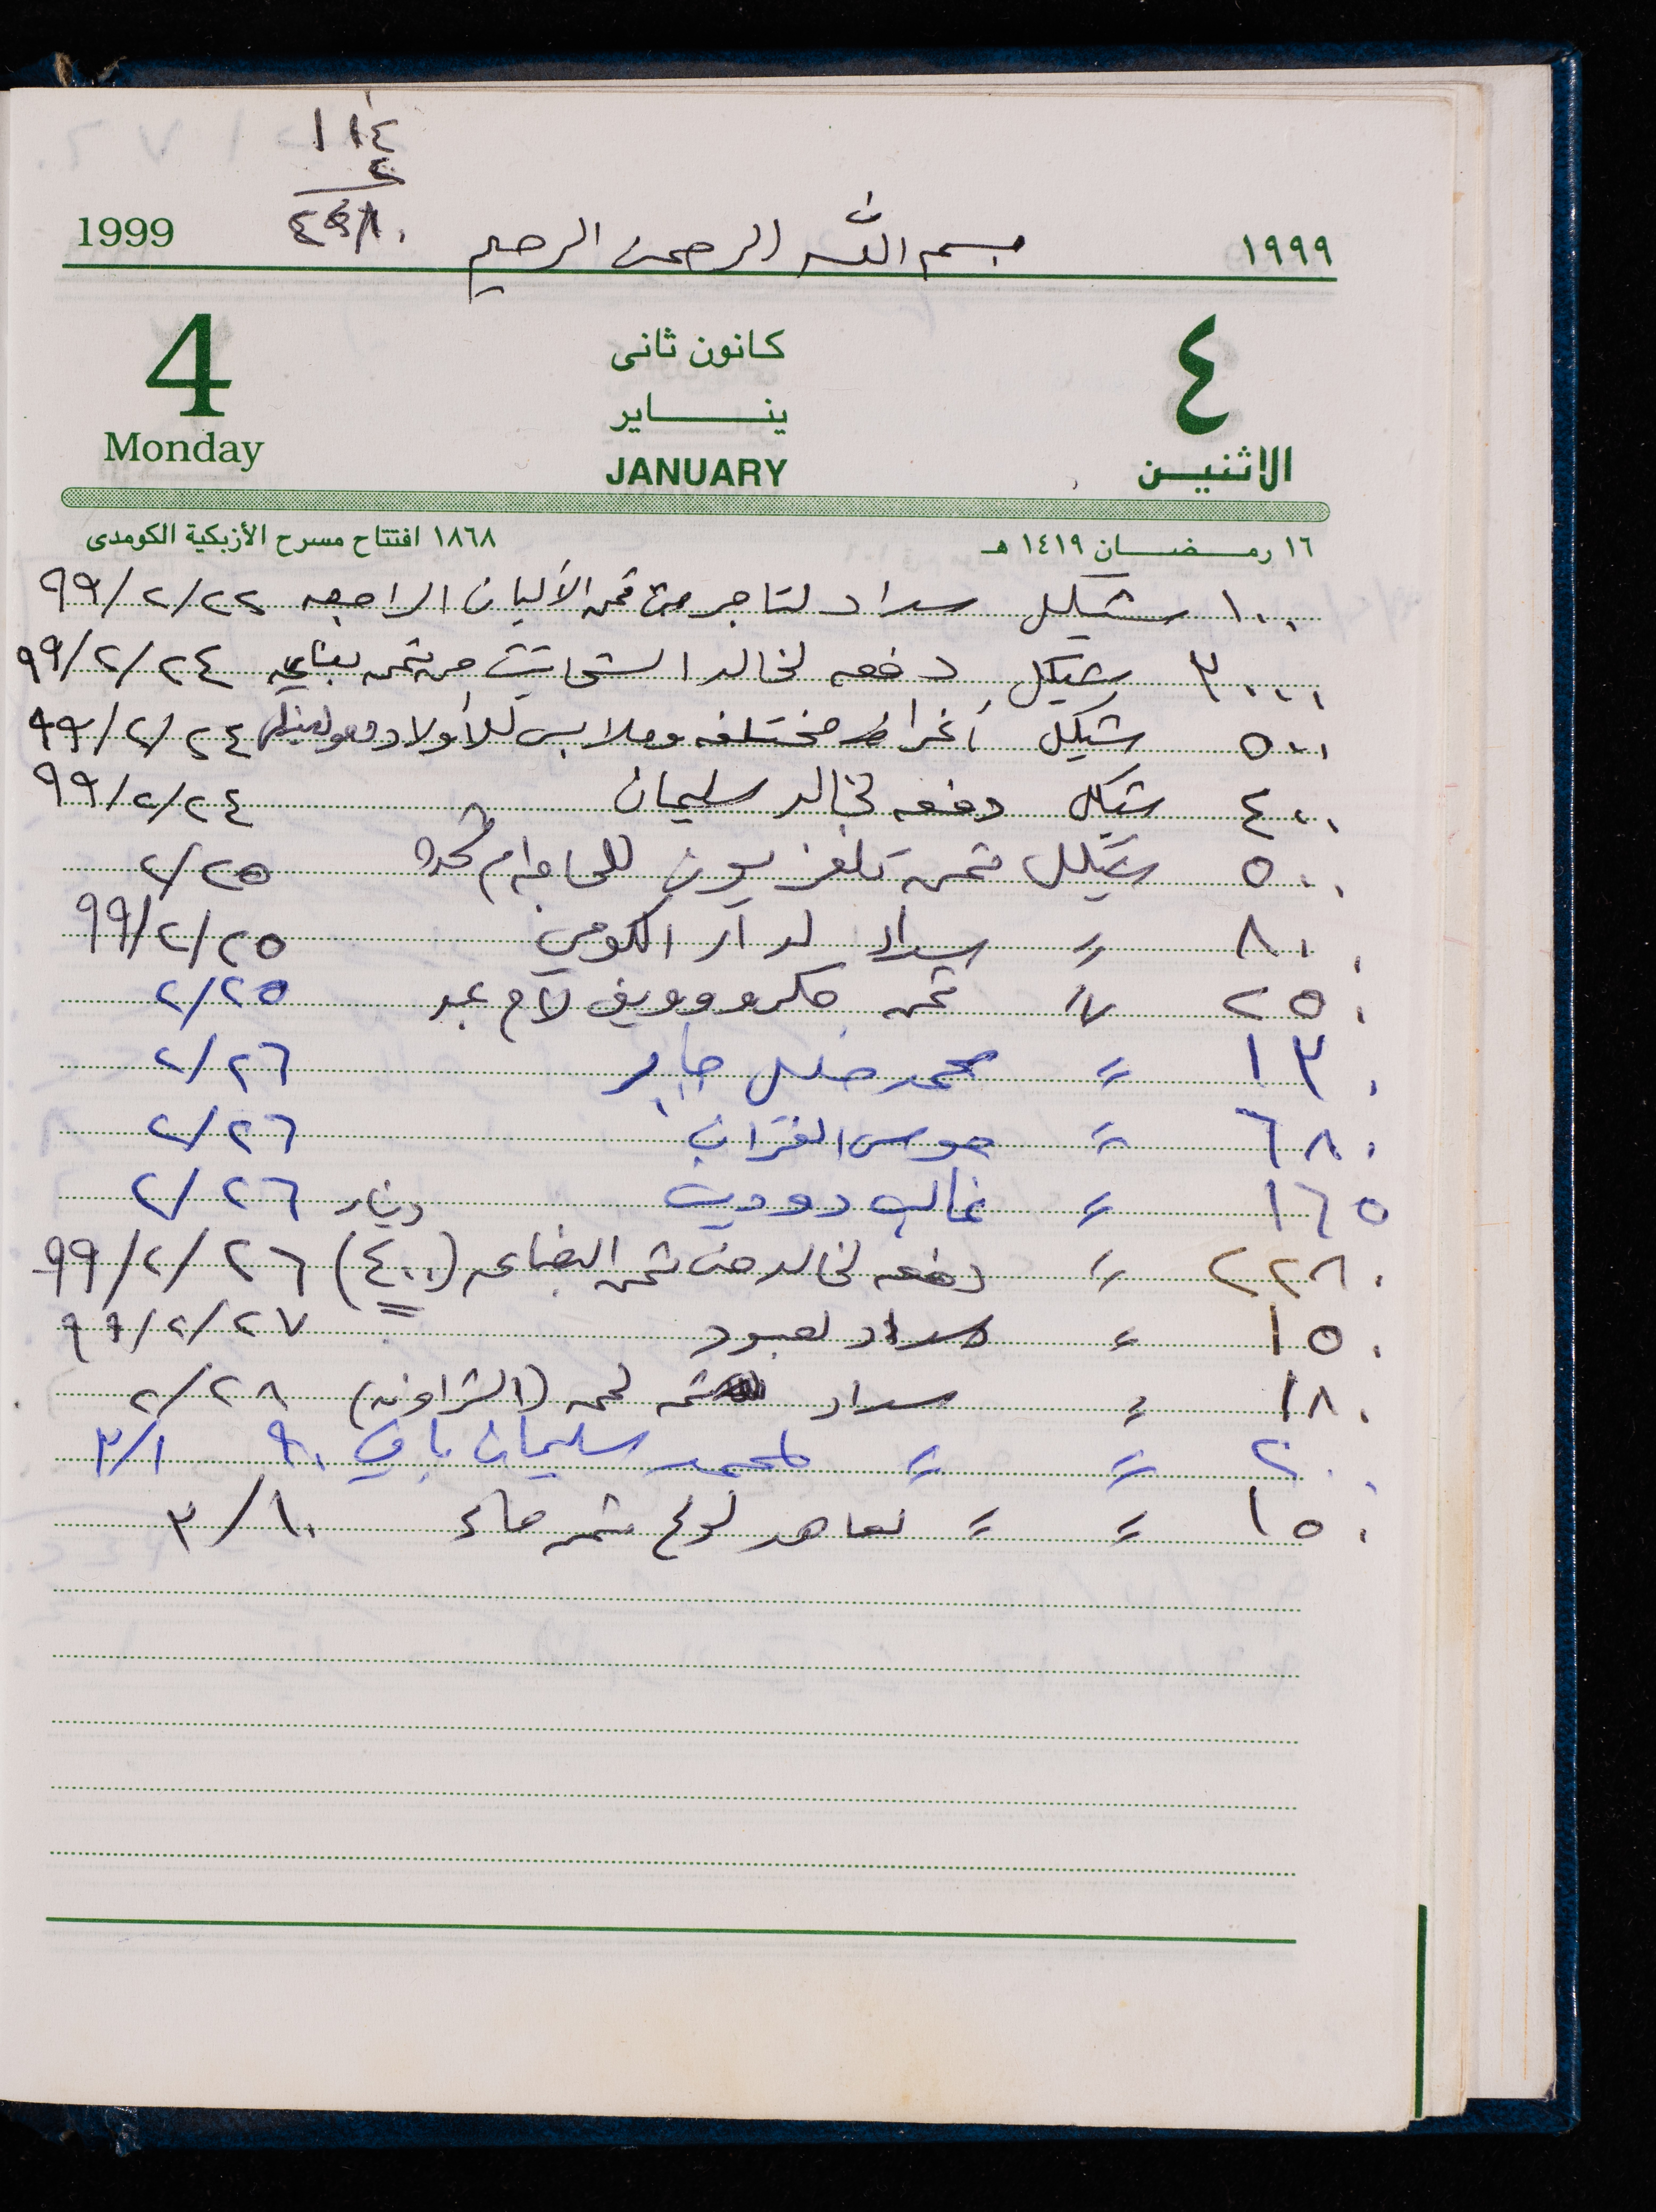 ١١٤
٤
1999
بسم الله الرحمن الرحيم
١٩٩٩
4
كانون ثانى
٤
ينـــاير
Monday
JANUARY
الاثنيـن
١٦ رمـضـان ١٤١٩ هـ
١٨٦٨ افتتاح مسرح الأزبكية الكومدى
١٠٠ شيكل سداد لتاجر من ثمن الألبان الراجعه ٩٩/٢/٢٢
٣٠٠٠ شيكل دفعه لخالد الشحاتيت من ثمن بضاعه ٩٩/٢/٢٤
٥٠٠ شيكل أغراض مختلفه وملابس للأولاد ٩٩/٢/٢٤
٤٠٠ شيكل دفعه لخالد سليمان ٩٩/٢/٢٤
٥٠٠ شيكل ثمن تلفزيون للحاجه ام ٢/٢٥
٨٠٠ = سداد لدار الكومي ٩٩/٢/٢٥
٢٥٠ = ثمن مكروويف لام عبد ٢/٢٥
١٣٠ = محمد خليل جابر ٢/٢٦
٦٨٠ = موسى القزاز ٢/٢٦
١٦٥ = غالب دوديت ٢/٢٦
٢٢٨٠ = دفعه لخالد من ثمن البضاعه (٤٠٠) دينار ٩٩/٢/٢٦
١٥٠ = سداد لعبود ٩٩/٢/٢٧
١٨٠ = سداد ثمن لحمه (الشراونه) ٢/٢٨
٢٠٠ = = لمحمد سليمان باقي ٩٠ ٣/١
١٥٠ = = لماهد ثمن ماء ٣/١٠